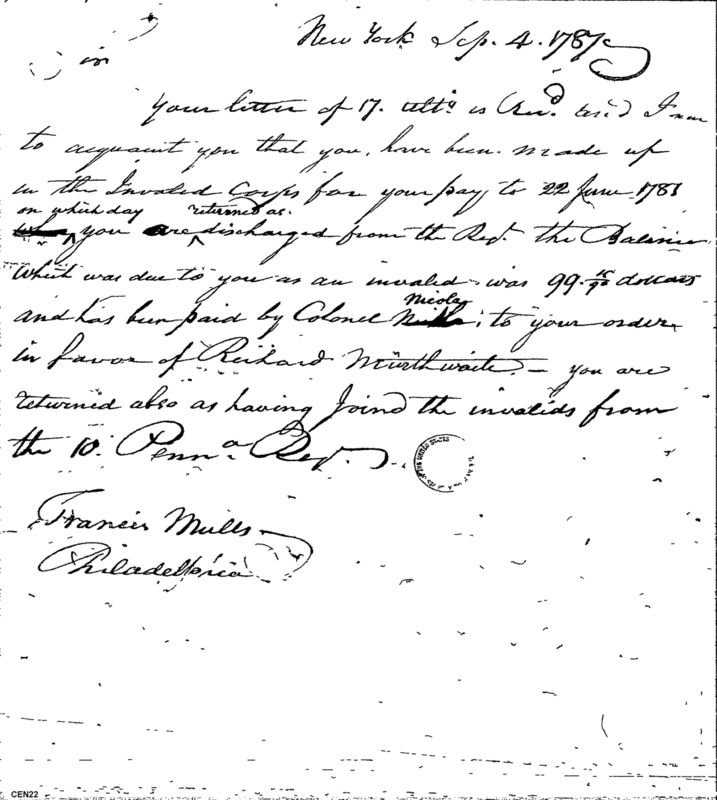 New York Sep. 4. 1787
in
Your letter of 17. Ulto is Recd I am
to acquaint you that you, have been made up
in the Invaled Corps for your pay to 22 June 1781
on which day returned as.
you are discharged from the Regt. the Balance
which was due to you as an invaled was 99. dollars
Nicola
and has been paid by Colonel to your order
in favor of Richard Murthwaite. - you are
returned also as having Joind the invalids from
the 10. Penna Regt.
Francis Mills
Philadelphia
CEN22